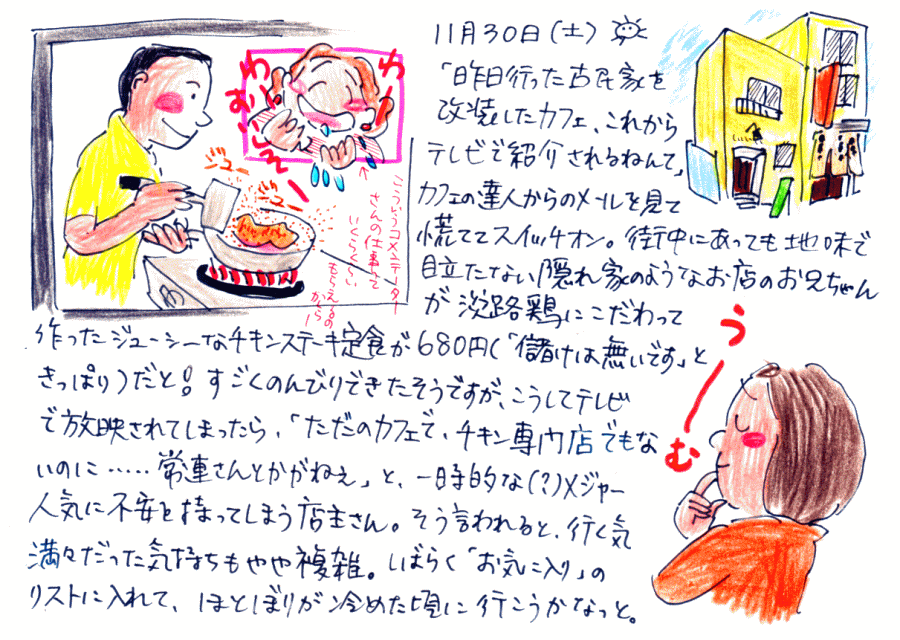 11月30日(土)
「昨日行った古民家を
改装したカフェ、これから
テレビで紹介されるねんて」
カフェの達人からのメールを見て
慌ててスイッチオン。街中にあっても地味で
目立たない隠れ家のようなお店のお兄ちゃん
が淡路鶏にこだわって
作ったジューシーなチキンステーキ定食が680円(「儲けは無いです」と
きっぱり)だと!すごくのんびりできたそうですが、こうしてテレビ
で放映されてしまったら、「ただのカフェで、チキン専門店でもな
いのに……常連さんとかがねぇ」と、一時的な(?)メジャー
人気に不安を持ってしまう店主さん。そう言われると、行く気
満々だった気持ちもやや複雑。しばらく「お気に入り」の
リストに入れて、ほとぼりが冷めた頃に行こうかなっと。
わー
わぉ
ジュー
ジュー
こういうコメンテーター
さんの仕事って
いくらくらい
もらえるの
かしら
うーむ